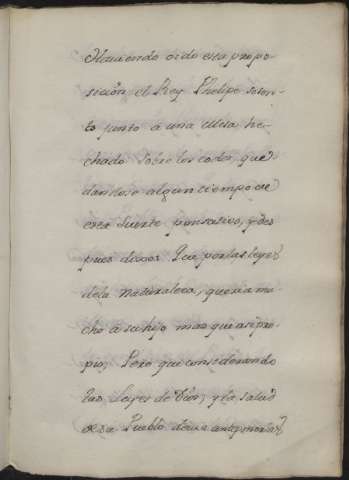 Haviendo oido esta propo-
sicion el Rey Phelipe solen-
to junto á una Mesa he-
chado sobre los codos, que
dandose algun tiempo de
esta Suerte pensativo, y des
pues dixo: Que por las leyes
dela naturaleza, queria mu
cho a su hijo mas que asi pro
pio, Pero que considerando
las Leyes de Dios, y la salud
de su Pueblo devia anteponerla